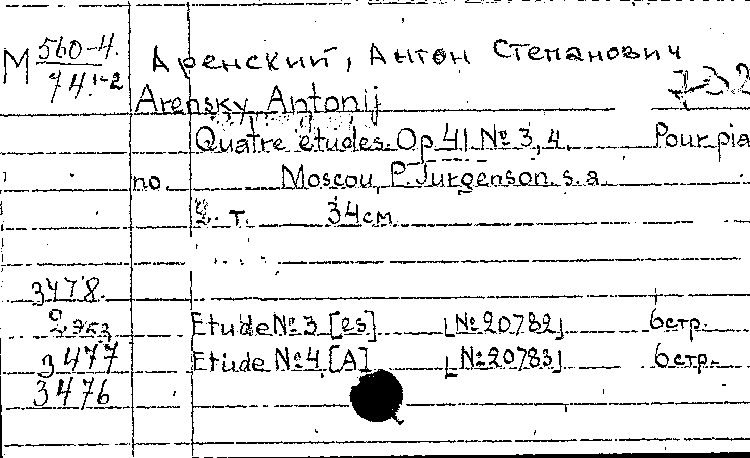 М 560-4. Аренский, Антон Степанович
74.1-2 7-3.2
Arensky Antonij
Quatre études. Op. 41 № 3, 4. Pour pia
no. Moscou, P. Jurgenson. s. a.
2. т. 34см
3478.
2 экз Etude № 3 [es] [№ 20782] 6стр.
3477 Etude № 4 [A] [№ 20783] 6стр.
3476